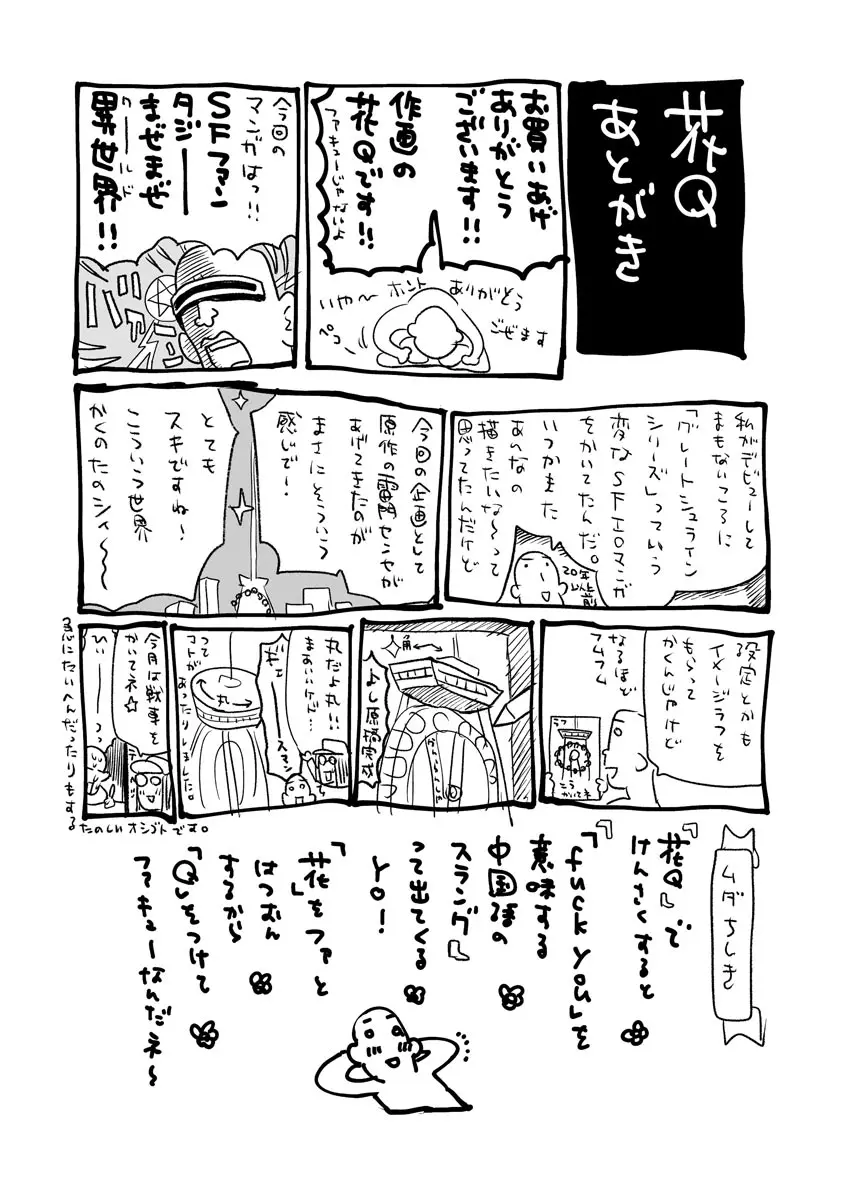 花Q
あとがき
お買いあげ
ありがとう
ございます!!
作画の
花Qです!!
ファキューじゃないよ
いや〜
ホント
ありがとう
ござます
ペコ
今回の
マンガはっ!!
SFファン
タジー
まぜまぜ
異世界!!
ワールド
私がデビューして
まもないころに
「グレートシュライン
シリーズ」っていう
変なSFエロマンガ
をかいてたんだ。
いつかまた
あんなの
描きたいな〜って
思ってたんだけど
20年
以上前
今回の企画として
原作の雷門センセが
あげてきたのが
まさにそういう
感じで!
とても
スキですね!
こういう世界
かくのたのシィ〜〜
設定とかも
イメージラフを
もらって
かくんじゃけど
なるほど
フムフム
ラフ
こう
かいてネ
角
よし原橋完成
丸だよ丸!!
まあいいけど…
ギェーー
スマン
丸
って
コトが
あったりしました。
今月は戦車を
かいてネ☆
ひぃーーっっ
急にたいへんだったりもする
たのしいオシゴトです。
ムダちしき
『花Q』で
けんさくすると
『「fuck you」を
意味する
中国語の
スラング』
って出てくる
yo!
「花」をファと
はつおん
するから
「Q」をつけて
ファキューなんだネ〜